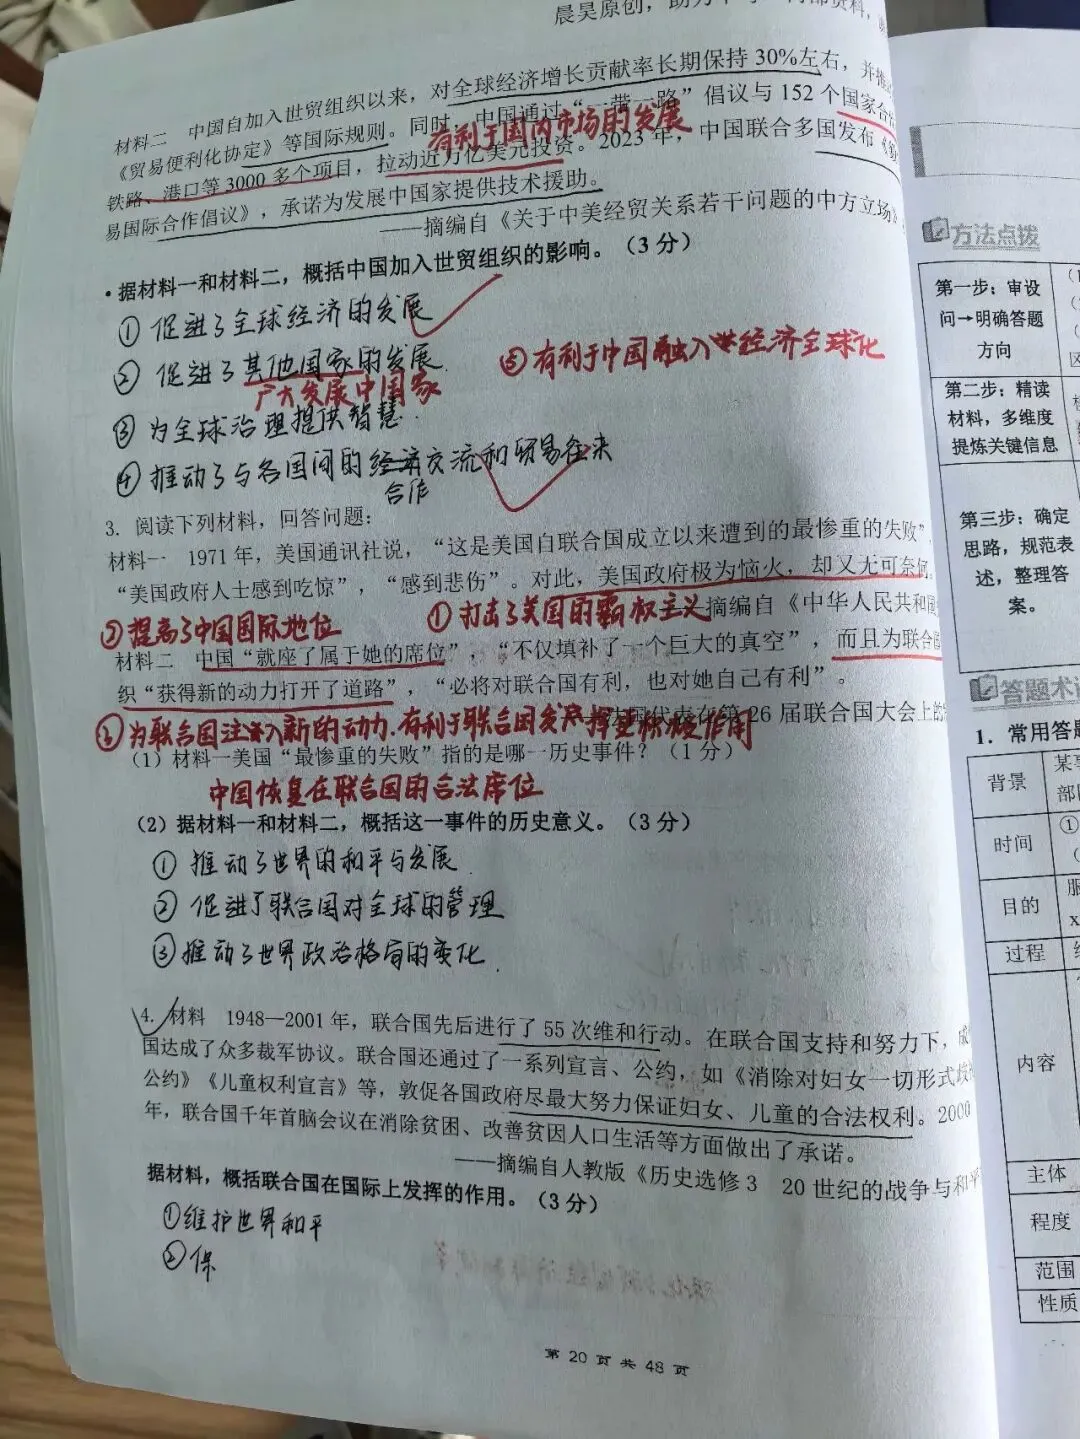 晨昊原创，助力
材料二 中国自加入世贸组织以来，对全球经济增长贡献率长期保持 30%左右，并推
《贸易便利化协定》等国际规则。同时，中国通过“一带一路”倡议与 152 个国家合
有利于国内市场的发展
铁路、港口等 3000 多个项目，拉动近万亿美元投资。2023 年，中国联合多国发布《
易国际合作倡议》，承诺为发展中国家提供技术援助。
——摘编自《关于中美经贸关系若干问题的中方立场》
·据材料一和材料二，概括中国加入世贸组织的影响。（3 分）
①促进了全球经济的发展
②促进了其他国家的发展.
⑤有利于中国融入世经济全球化
广大发展中国家
③为全球治理提供智慧.
④推动了与各国间的经济交流和贸易往来
合作
3. 阅读下列材料，回答问题：
材料一 1971 年，美国通讯社说，“这是美国自联合国成立以来遭到的最惨重的失败”，
“美国政府人士感到吃惊”，“感到悲伤”。对此，美国政府极为恼火，却又无可奈何。
②提高了中国国际地位
①打击了美国的霸权主义
摘编自《中华人民共和国
材料二 中国“就座了属于她的席位”，“不仅填补了一个巨大的真空”，而且为联合国
织“获得新的动力打开了道路”，“必将对联合国有利，也对她自己有利”。
法国代表在第 26 届联合国大会上的
③为联合国注入新的动力.有利于联合国发挥更积极作用
（1）材料一美国“最惨重的失败”指的是哪一历史事件？（1 分）
中国恢复在联合国的合法席位
（2）据材料一和材料二，概括这一事件的历史意义。（3 分）
①推动了世界的和平与发展.
②促进了联合国对全球的管理
③推动了世界政治格局的变化.
4. 材料 1948—2001 年，联合国先后进行了 55 次维和行动。在联合国支持和努力下，
国达成了众多裁军协议。联合国还通过了一系列宣言、公约，如《消除对妇女一切形式歧
公约》《儿童权利宣言》等，敦促各国政府尽最大努力保证妇女、儿童的合法权利。2000
年，联合国千年首脑会议在消除贫困、改善贫困人口生活等方面做出了承诺。
——摘编自人教版《历史选修 3 20 世纪的战争与和平
据材料，概括联合国在国际上发挥的作用。（3 分）
①维护世界和平
②保
第 20 页 共 48 页
方法点拨
第一步：审设
问→明确答题
方向
第二步：精读
材料，多维度
提炼关键信息
第三步：确定
思路，规范表
述，整理答
案。
答题术语
1．常用答题
背景
时间
①
目的
过程
内容
主体
程度
范围
性质